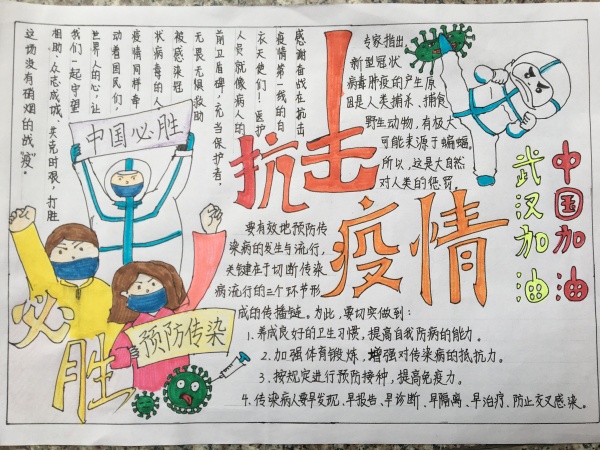 抗击
疫情
中国加油
武汉加油
感谢奋战在抗击
疫情第一线的白
衣天使们！医护
人员就像病人的
前卫盾牌，充当保护者，
无畏无惧救助
被感染冠
状病毒的人
疫情同样牵
动着国民们，
世界人的心，让
我们一起守望
相助、众志成城、共克时艰，打胜
这场没有硝烟的战“疫”。
专家指出，
新型冠状
病毒肺疫的产生原
因是人类捕杀、捕食
野生动物，有极大
可能来源于蝙蝠。
所以，这是大自然
对人类的惩罚。
中国必胜
必胜
预防传染
要有效地预防传
染病的发生与流行，
关键在于切断传染
病流行的三个环节形
成的传播链。为此，要切实做到：
1.养成良好的卫生习惯，提高自我防病的能力。
2.加强体育锻炼，增强对传染病的抵抗力。
3.按规定进行预防接种，提高免疫力。
4.传染病人要早发现、早报告、早诊断、早隔离、早治疗、防止交叉感染。